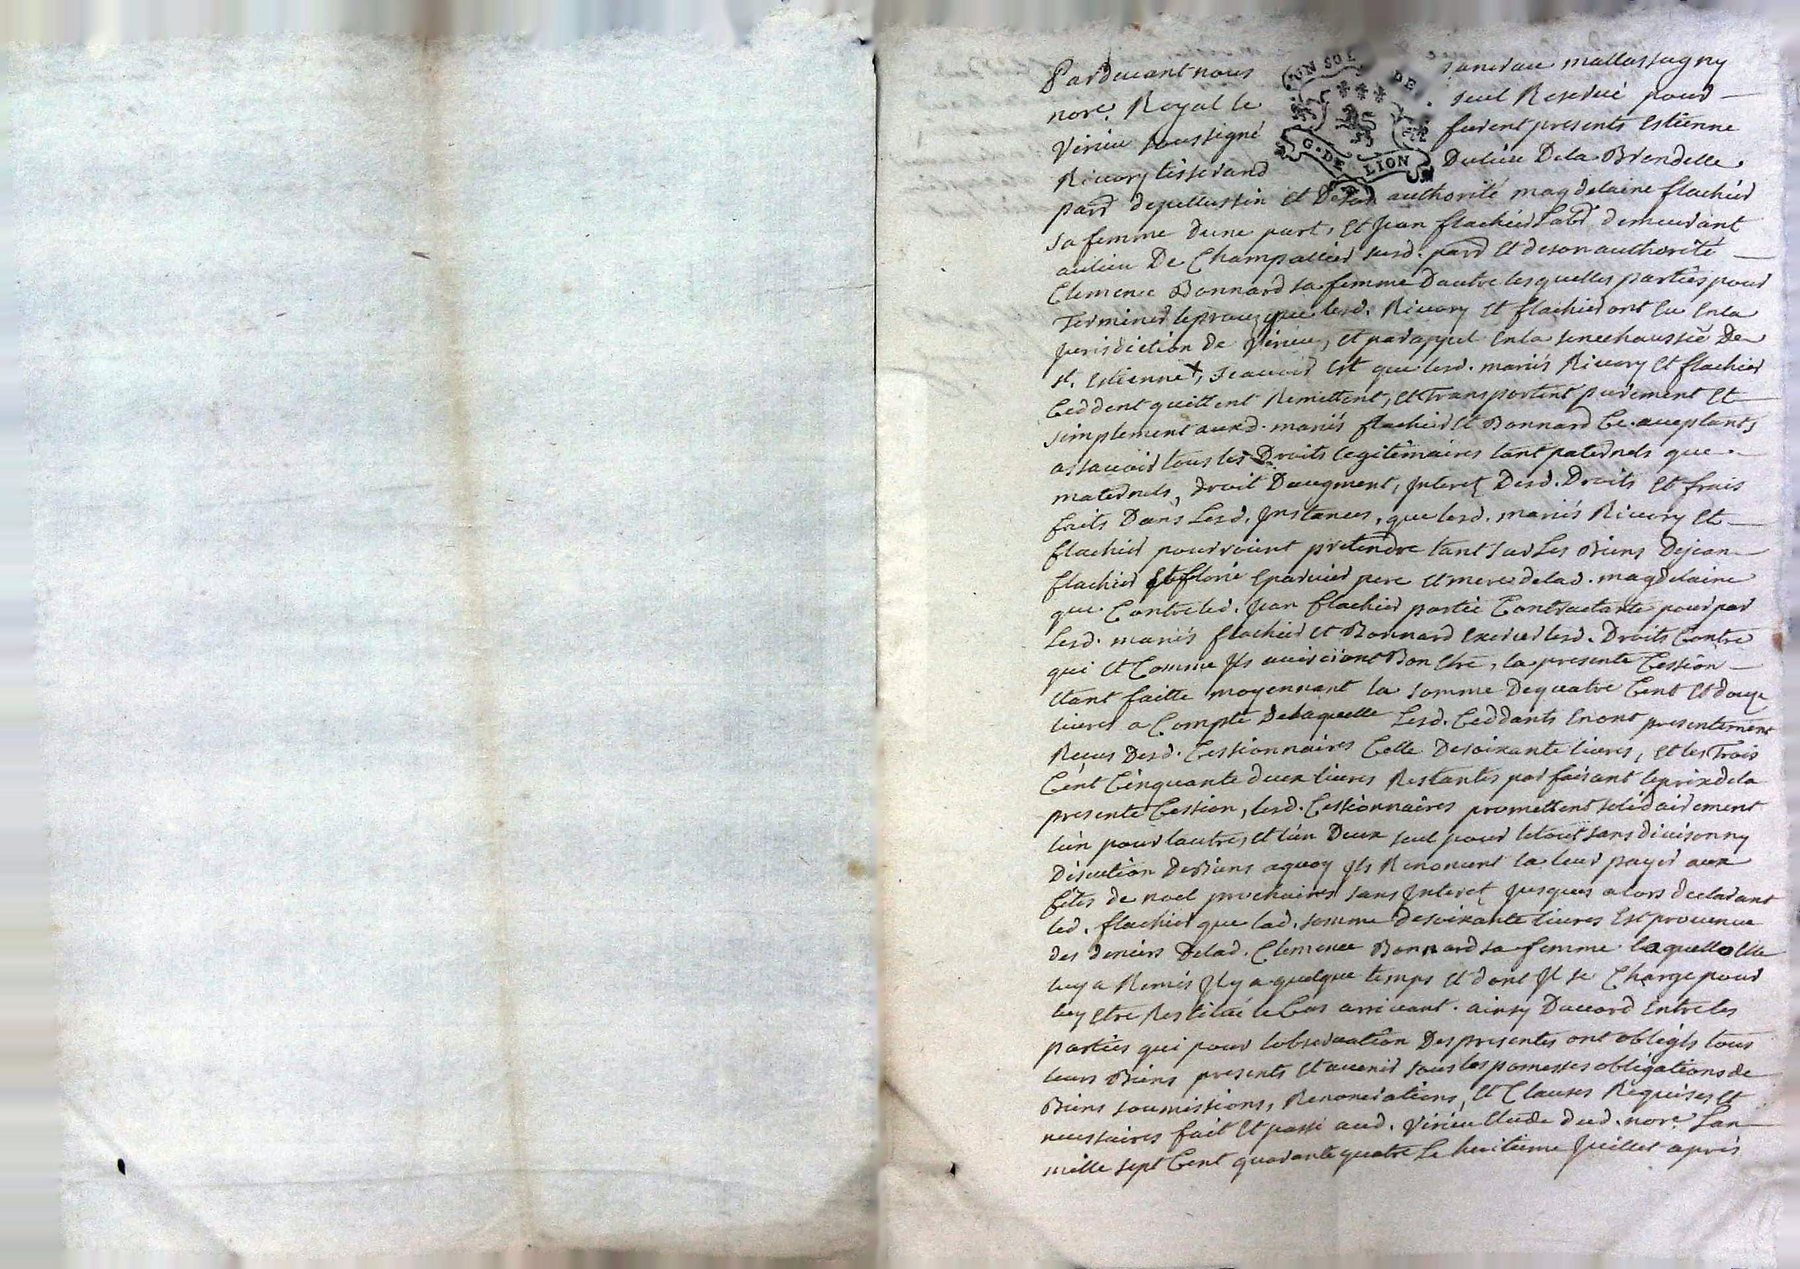 Pardevant nous
not.re Royal le
Virieu soussigné
Rivory tisserand
UN SOL DE
G. DE LION
mallassagny
seul Reservé pour
furent presents Estienne
Du lieu De la Brendelle
parr.d depellussin et De son authorité magdelaine flachier
sa femme dune part, et Jean flachier lab.r demeurant
aulieu De Champallier susd. parr.d et deson authorité
Clemence Bonnard sa femme Dautre lesquelles parties pour
Terminer leprocez que lesd. Rivory et flachier ont eu Enla
Jurisdiction de Virieu, et parappel Enla senechaussée De
st. Estienne x, scavoir Est que lesd. mariés Rivory et flachier
Ceddent quittent Remettent, et Transportent purement et
simplement auxd. mariés flachier et Bonnard Ce. aceptants
assavoir tous les Droits legitimaires tant paternels que
maternels, droit Daugment, Interetz Desd. Droits et frais
faits Dans Lesd. Instances, que lesd. mariés Rivory et
flachier pourroient pretendre tant sur Les Biens Dejean
flachier et florie Eparvier pere et mere delad. magdelaine
que Contre led. Jean flachier partie Contractante pour par
Lesd. mariés flachier et Bonnard Exercer lesd. Droits Contre
qui et Comme Ils aviseront Bon Etre, la presente Cession
Etant faitte moyennant la somme Dequatre Cent et douze
livres a Compte delaquelle Lesd. Ceddants Enont presentement
Reçus Desd. Cessionnaires Celle Desoixante livres, et les Trois
Cent Cinquante deux livres Restantes parfaisant leprix dela
presente Cession, lesd. Cessionnaires promettent solidairement
lun pour lautre, et lun Deux seul pour letout sans division ny
Discution DeBiens aquoy Ils Renoncent la leur payer aux
fêtes de noel prochaines sans Interetz Jusques alors declarant
led. flachier que lad. somme desoixante livres Est provenue
des deniers Delad. Clemence Bonnard sa femme laquelle Elle
luy a Remis Il y a quelque temps et dont Il se Charge pour
luy etre Restitué le Cas arrivant. ainsy Daccord Entre les
parties qui pour lobservation Des presentes ont obligés tous
leurs Biens presents et avenir sous les pomesses obligations de
Biens soumissions, Renonciations, et Clauses Requises et
necessaires fait et passé aud. Virieu Etude dud. nore. Lan
mille sept Cent quarante quatre Le huitieme Juillet après